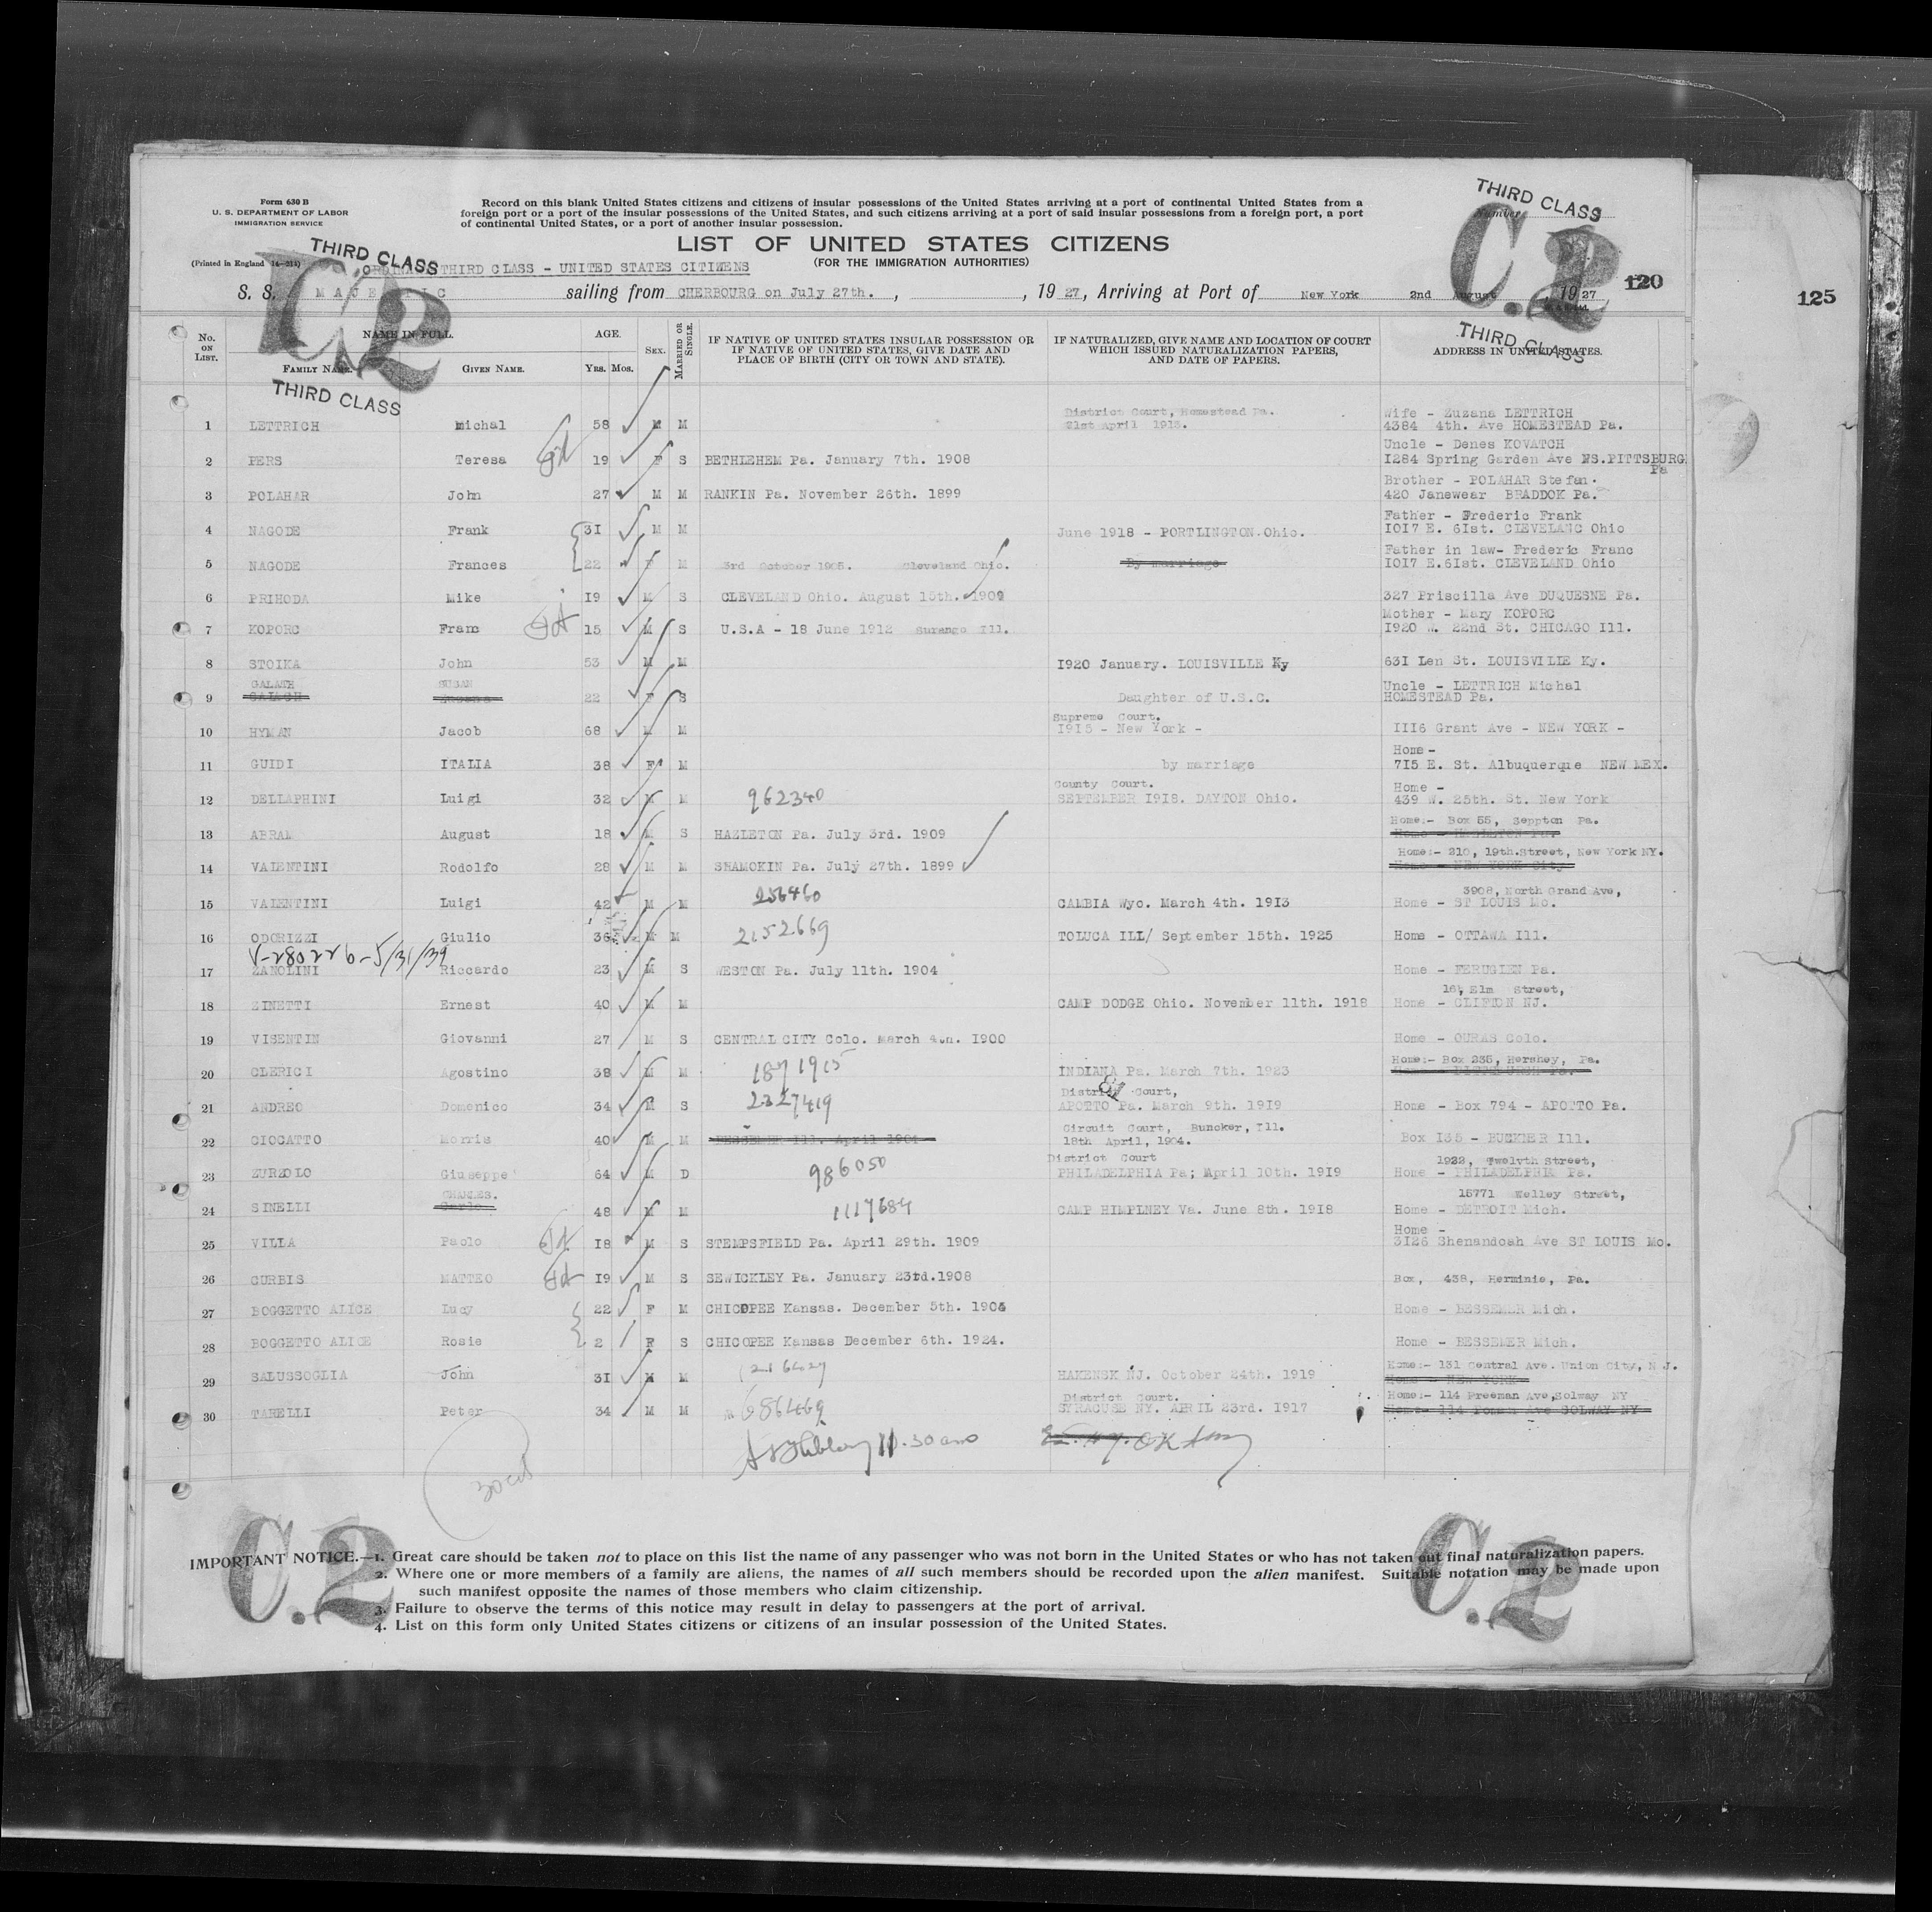 Form 630 B
U. S. DEPARTMENT OF LABOR
IMMIGRATION SERVICE
(Printed in England 14—214)
Record on this blank United States citizens and citizens of insular possessions of the United States arriving at a port of continental United States from a
foreign port or a port of the insular possessions of the United States, and such citizens arriving at a port of said insular possessions from a foreign port, a port
of continental United States, or a port of another insular possession.
THIRD CLASS
Number
C.2
THIRD CLASS
C.2
LIST OF UNITED STATES CITIZENS
(FOR THE IMMIGRATION AUTHORITIES)
THIRD CLASS - UNITED STATES CITIZENS
120
125
S. S. MAJESTIC sailing from CHERBOURG on July 27th. , , 19 27, Arriving at Port of New York 2nd August , 19 27
THIRD CLASS
THIRD CLASS
No. ON LIST. NAME IN FULL. FAMILY NAME. GIVEN NAME. AGE. YRS. MOS. SEX. MARRIED OR SINGLE. IF NATIVE OF UNITED STATES INSULAR POSSESSION OR IF NATIVE OF UNITED STATES, GIVE DATE AND PLACE OF BIRTH (CITY OR TOWN AND STATE). IF NATURALIZED, GIVE NAME AND LOCATION OF COURT WHICH ISSUED NATURALIZATION PAPERS, AND DATE OF PAPERS. ADDRESS IN UNITED STATES.
District Court, Homestead Pa. Wife - Zuzana LETTRICH
1 LETTRICH Michal 58 M M 21st April 1913. 4384 4th. Ave HOMESTEAD Pa.
Uncle - Denes KOVATCH
2 PERS Teresa 19 F S BETHLEHEM Pa. January 7th. 1908 1284 Spring Garden Ave NS.PITTSBURG
Pa
Brother - POLAHAR Stefan.
3 POLAHAR John 27 M M RANKIN Pa. November 26th. 1899 420 Janewear BRADDOK Pa.
Father - Frederic Frank
4 NAGODE Frank 31 M M June 1918 - PORTLINGTON.Ohio. 1017 E. 61st. CLEVELANC Ohio
Father in law- Frederic Franc
5 NAGODE Frances 22 F M 3rd October 1905. Cleveland Ohio. By marriage 1017 E.61st. CLEVELAND Ohio
6 PRIHODA Mike 19 M S CLEVELAND Ohio. August 15th. 1909 327 Priscilla Ave DUQUESNE Pa.
Mother - Mary KOPORC
7 KOPORC Franc 15 M S U.S.A - 18 June 1912 Ill. 1920 W. 22nd St. CHICAGO Ill.
8 STOIKA John 53 M M 1920 January. LOUISVILLE Ky 631 Len St. LOUISVILLE Ky.
GALATH SUSAN Uncle - LETTRICH Michal
9 22 F S Daughter of U.S.C. HOMESTEAD Pa.
Supreme Court.
10 HYMAN Jacob 68 M M 1915 - New York - 1116 Grant Ave - NEW YORK -
Home -
11 GUIDI ITALIA 38 F M by marriage 715 E. St. Albuquerque NEW MEX.
County Court. Home -
12 DELLAPHINI Luigi 32 M M 962340 SEPTEMBER 1918. DAYTON Ohio. 439 W. 25th. St. New York
Home:- Box 55, Seppton Pa.
13 ABRAM August 18 M S HAZLETON Pa. July 3rd. 1909
Home:- 210, 19th.Street, New York NY.
14 VALENTINI Rodolfo 28 M M SHAMOKIN Pa. July 27th. 1899 Home - NEW YORK City
3908, North Grand Ave,
15 VALENTINI Luigi 42 M M 256460 CAMBIA Wyo. March 4th. 1913 Home - ST LOUIS Mo.
16 ODORIZZI Giulio 36 M M 2152669 TOLUCA ILL/ September 15th. 1925 Home - OTTAWA Ill.
V-280226-5/31/39
17 ZANOLINI Riccardo 23 M S WESTON Pa. July 11th. 1904 Home - FERUGIEN Pa.
16, Elm Street,
18 ZINETTI Ernest 40 M M CAMP DODGE Ohio. November 11th. 1918 Home - CLIFTON NJ.
19 VISENTIN Giovanni 27 M S CENTRAL CITY Colo. March 4th. 1900 Home - OURAS Colo.
Home:- Box 235, Hershey, Pa.
20 CLERICI Agostino 38 M M 1871915 INDIANA Pa. March 7th. 1923
District Court,
21 ANDREO Domenico 34 M S 2327419 APOTTO Pa. March 9th. 1919 Home - Box 794 - APOTTO Pa.
Circuit Court, Buncker, Ill.
22 CIOCATTO Morris 40 M M BESSEMER Ill. April 1904 18th April, 1904. Box 135 - BUCKIER Ill.
District Court 1922, Twelvth Street,
23 ZURZOLO Giuseppe 64 M D 986050 PHILADELPHIA Pa; April 10th. 1919 Home - PHILADELPHIA Pa.
CHARLES. 15771 Welley Street,
24 SINELLI Carlo 48 M M 1117684 CAMP HIMPLNEY Va. June 8th. 1918 Home - DETROIT Mich.
Home -
25 VILLA Paolo 18 M S STEMPSFIELD Pa. April 29th. 1909 3126 Shenandoah Ave ST LOUIS Mo.
26 CURBIS MATTEO 19 M S SEWICKLEY Pa. January 23rd.1908 Box, 438, Herminie, Pa.
27 BOGGETTO ALICE Lucy 22 F M CHICOPEE Kansas. December 5th. 1904 Home - BESSEMER Mich.
28 BOGGETTO ALICE Rosie 2 F S CHICOPEE Kansas December 6th. 1924. Home - BESSEMER Mich.
Home:- 131 Central Ave. Union City, N J.
29 SALUSSOGLIA John 31 M M HAKENSK NJ. October 24th. 1919 Home - NEW YORK
District Court. Home:- 114 Freeman Ave,Solway NY
30 TARELLI Peter 34 M M 686469 SYRACUSE NY. APRIL 23rd. 1917 Home- 114 Ave SOLWAY NY
11.30 am OK
C.2
C.2
IMPORTANT NOTICE.—1. Great care should be taken not to place on this list the name of any passenger who was not born in the United States or who has not taken out final naturalization papers.
2. Where one or more members of a family are aliens, the names of all such members should be recorded upon the alien manifest. Suitable notation may be made upon
such manifest opposite the names of those members who claim citizenship.
3. Failure to observe the terms of this notice may result in delay to passengers at the port of arrival.
4. List on this form only United States citizens or citizens of an insular possession of the United States.